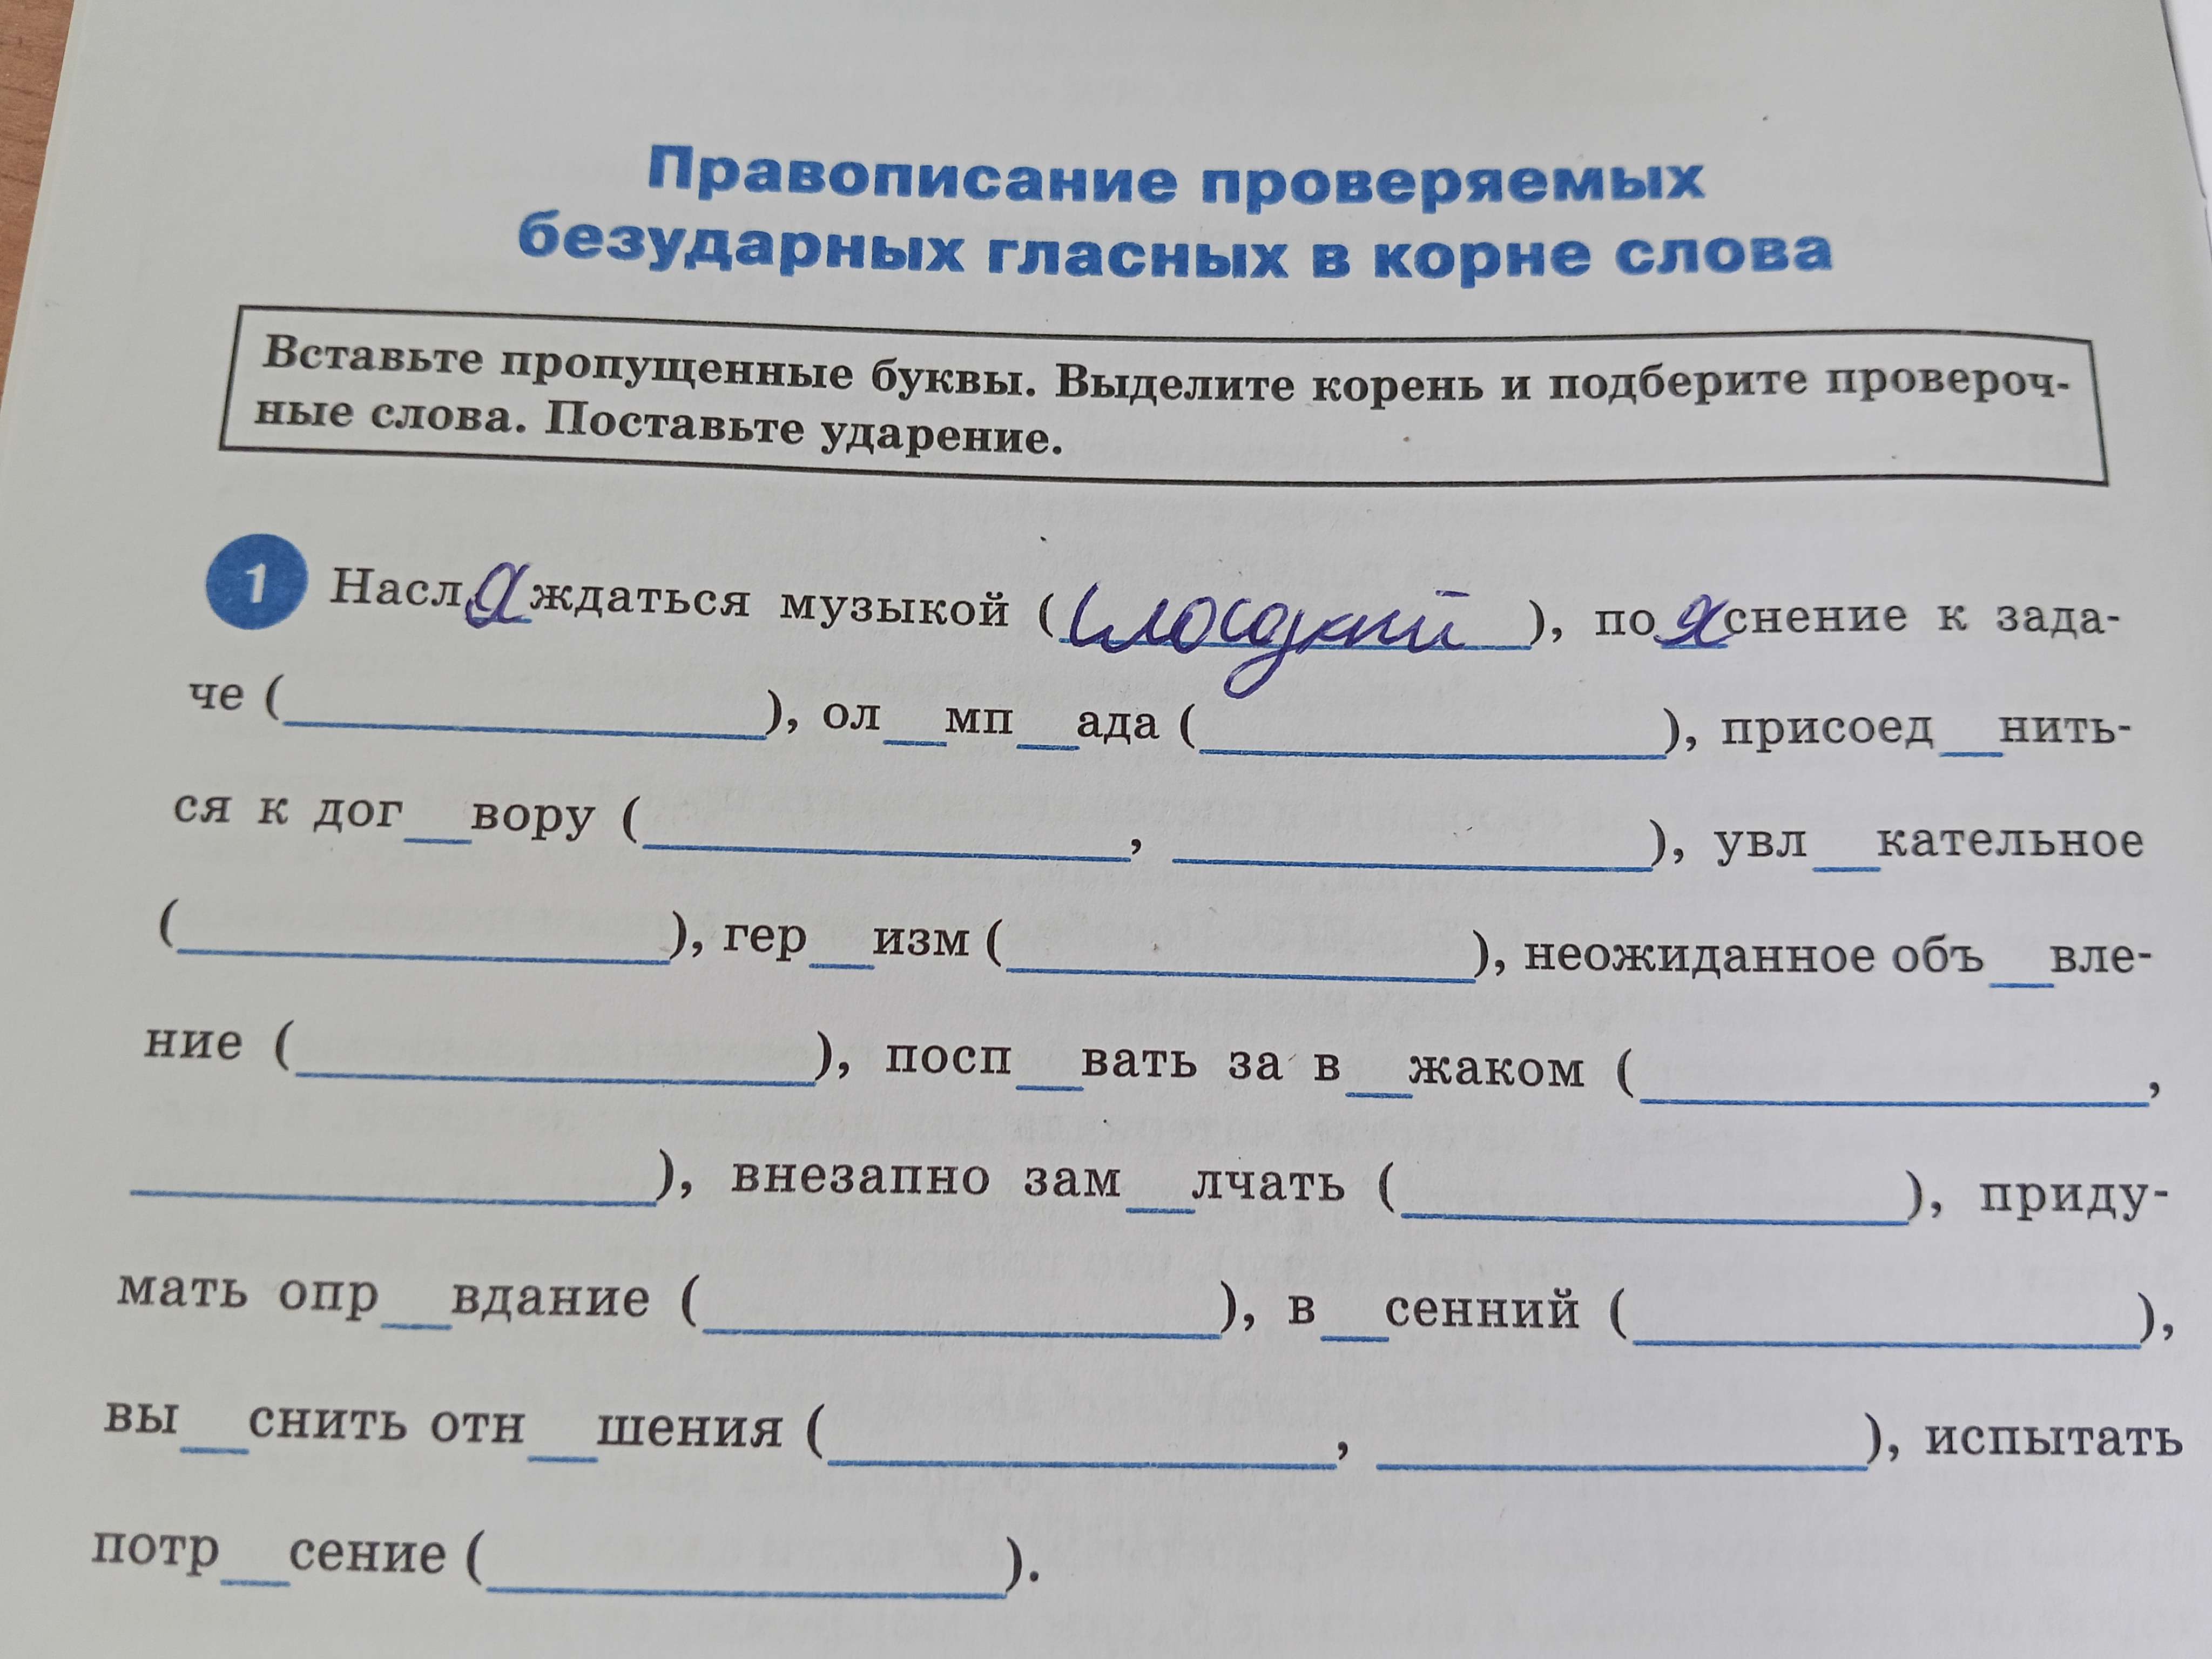 Правописание проверяемых
безударных гласных в корне слова
Вставьте пропущенные буквы. Выделите корень и подберите провероч-
ные слова. Поставьте ударение.
1 Насл а ждаться музыкой (сладкий), по я снение к зада-
че (__________), ол__мп__ада (__________), присоед__нить-
ся к дог__вору (__________, __________), увл__кательное
(__________), гер__изм (__________), неожиданное объ__вле-
ние (__________), посп__вать за в__жаком (__________,
__________), внезапно зам__лчать (__________), приду-
мать опр__вдание (__________), в__сенний (__________),
вы__снить отн__шения (__________, __________), испытать
потр__сение (__________).